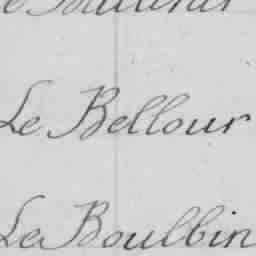 Le Bellour
Le Boulbin